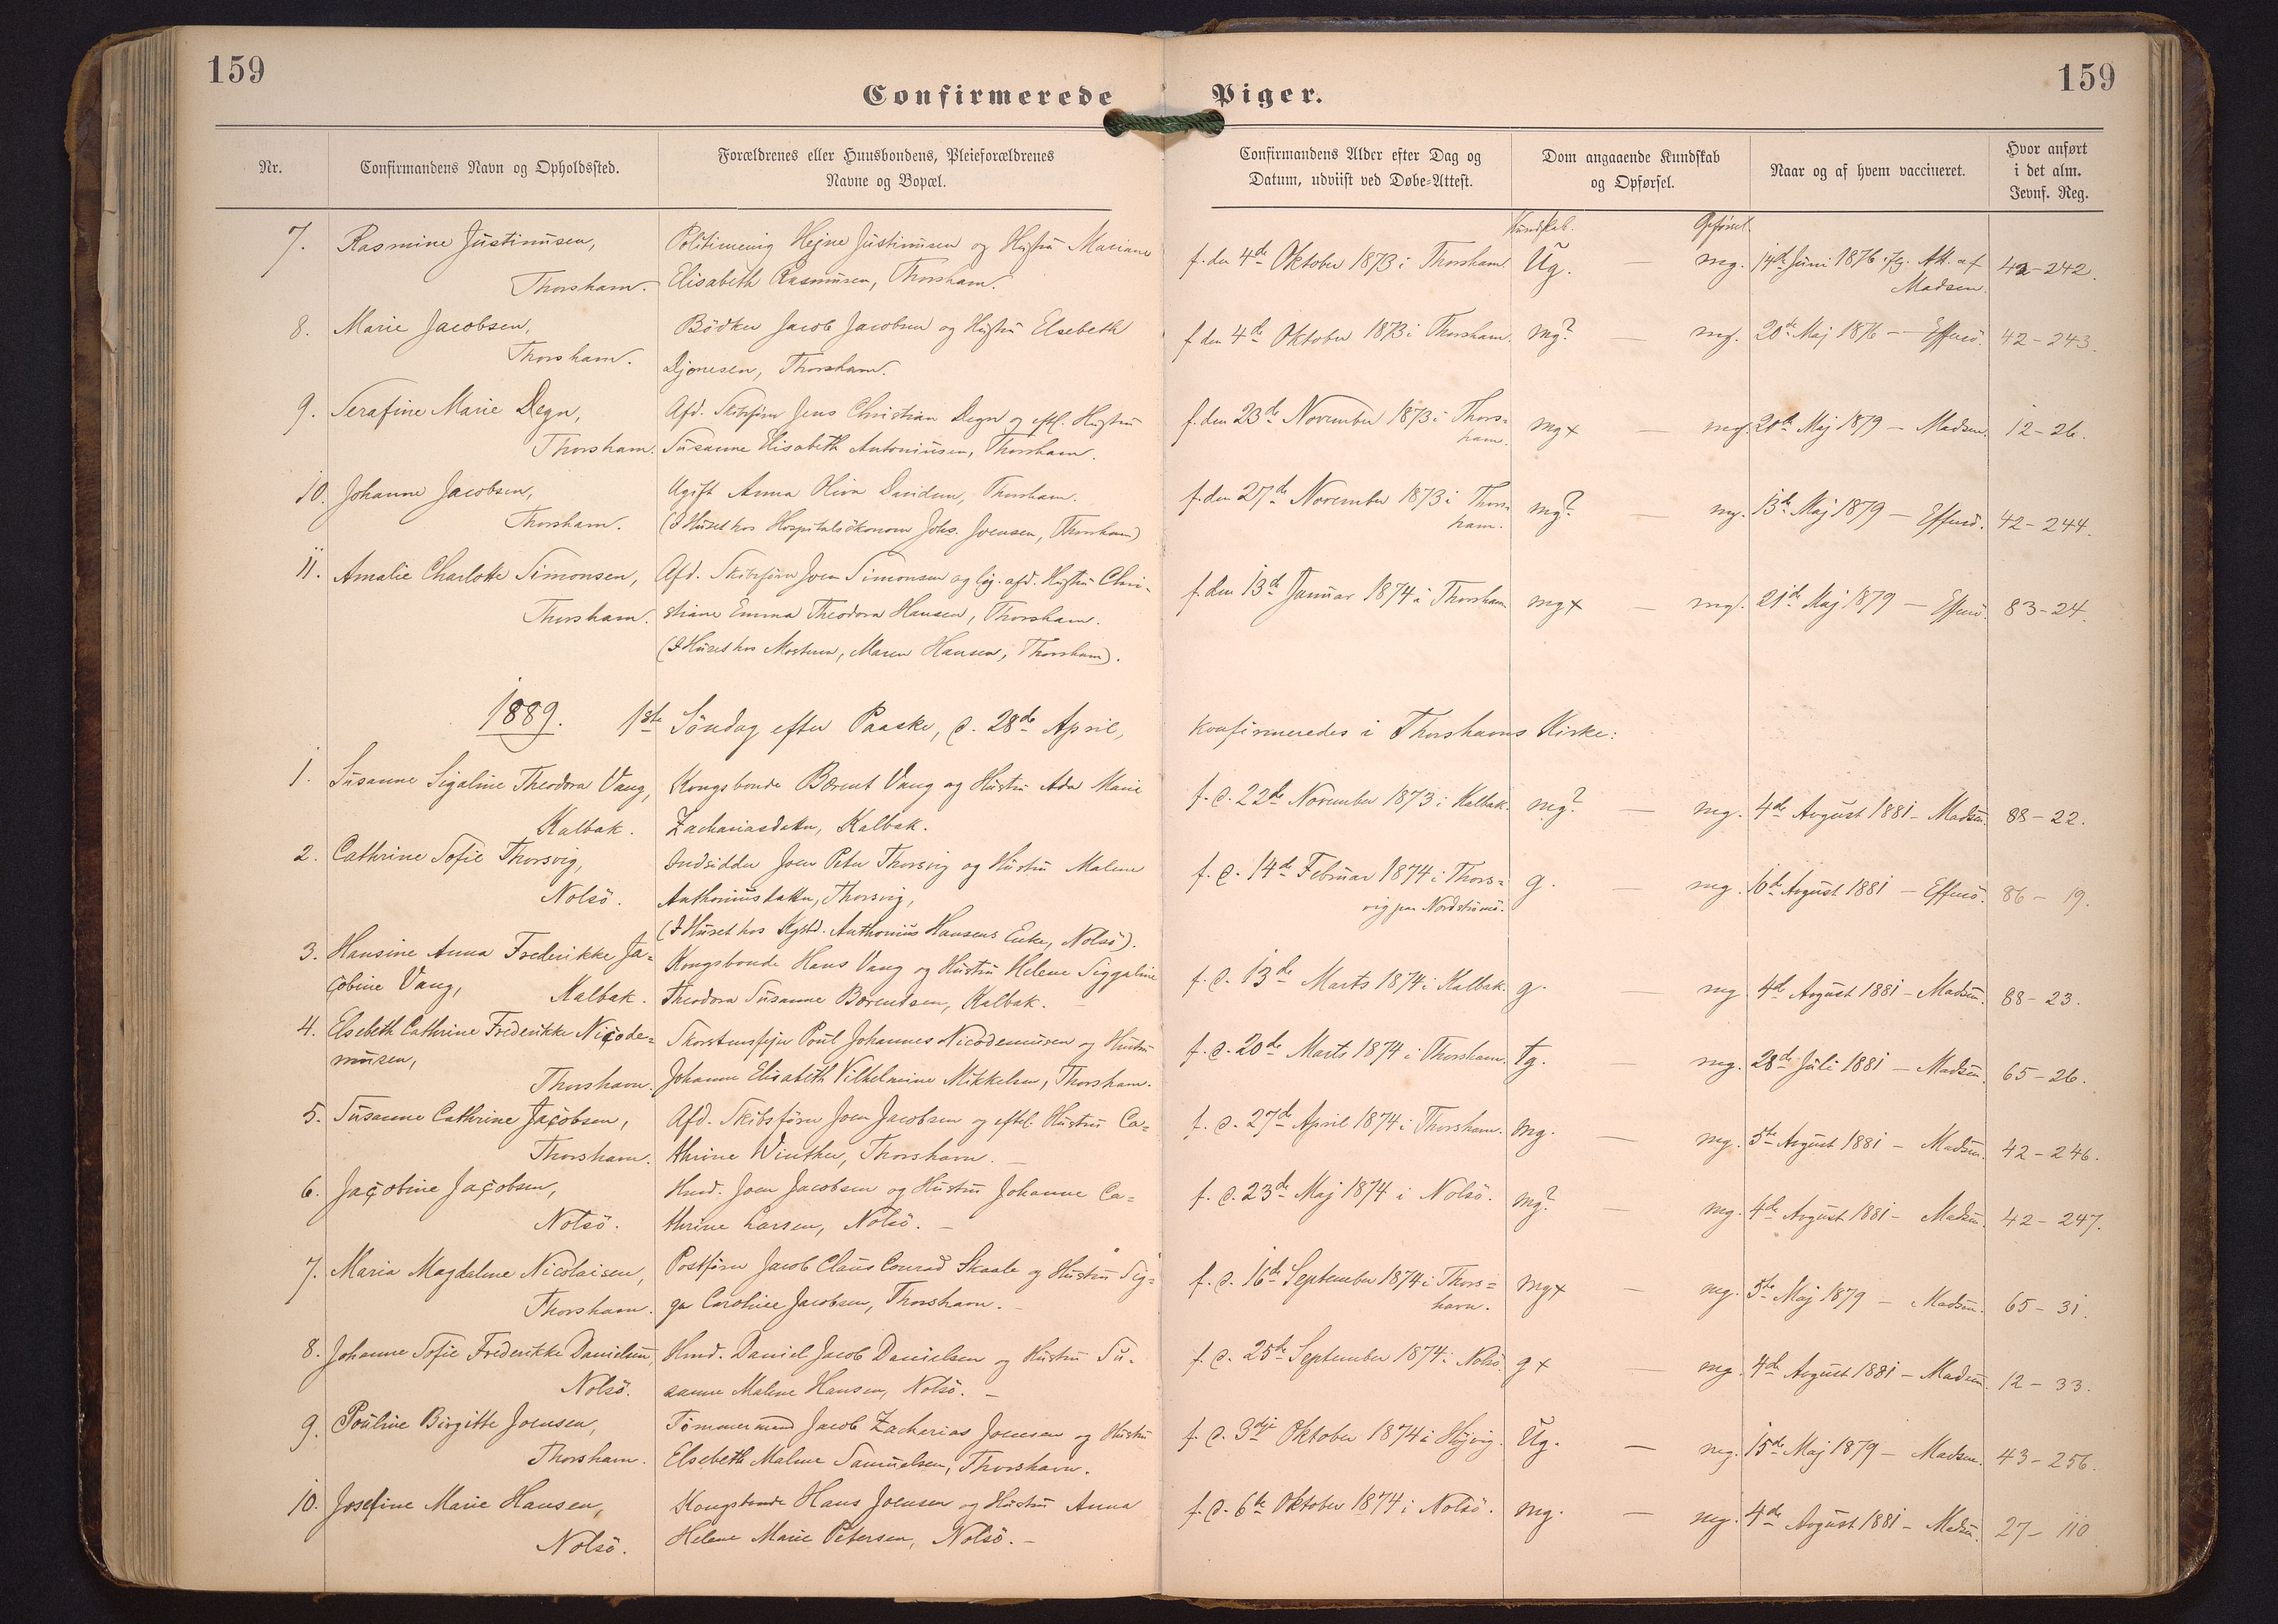 159
159
Confirmerede Piger.
Nr.
Confirmandens Navn og Opholdssted.
Forældrenes eller Huusbondens, Pleieforældrenes
Navne og Bopæl.
Confirmandens Alder efter Dag og
Datum, udviist ved Døbe-Attest.
Dom angaaende Kundskab
og Opførsel.
Naar og af hvem vaccineret.
Hvor anført
i det alm.
Jevnf. Reg.
Kundskab. Opførsel.
7. Rasmine Justinusen,
Thorshavn.
Politimenig Hejne Justinusen og Hustru Mariane
Elisabeth Rasmusen, Thorshavn.
f. den 4de Oktober 1873 i Thorshavn.
Ug. — mg.
14de Juni 1876 Att. af
Madsen.
42-242.
8. Marie Jacobsen,
Thorshavn.
Bödker Jacob Jacobsen og Hustru Elsebeth
Djonesen, Thorshavn.
f. den 4de Oktober 1873 i Thorshavn.
mg? — mg.
20de Maj 1876 — Effersö.
42-243.
9. Serafine Marie Degn,
Thorshavn.
Afd. Skibsfører Jens Christian Degn og eftl. Hustru
Susanne Elisabeth Antoniusen, Thorshavn.
f. den 23de November 1873 i Thors=
havn.
mg+ — mg.
20de Maj 1879 — Madsen.
12-26.
10. Johanne Jacobsen,
Thorshavn.
Ugift Anna Oliva Davidsen, Thorshavn.
(I Huset hos Hospitalsökonom Johs. Joensen, Thorshavn)
f. den 27de November 1873 i Thors
havn.
mg? — mg.
13de Maj 1879 — Effersö.
42-244.
11. Amalie Charlotte Simonsen,
Thorshavn.
Afd. Skibsfører Joen Simonsen og lig. afd. Hustru Chri-
stiane Emma Theodora Hansen, Thorshavn.
(I Huset hos Mosteren, Maren Hansen, Thorshavn).
f. den 13de Januar 1874 i Thorshavn
mg+ — mg.
21de Maj 1879 — Effersö
83-24.
1889. 1ste Söndag efter Paaske, d. 28de April, konfirmeredes i Thorshavns Kirke:
1. Susanne Sigaline Theodora Vang,
Kalbak.
Kongsbonde Bærent Vang og Hustru Ada Marie
Zachariasdatter, Kalbak.
f. d. 22de November 1873 i Kalbak.
mg? — mg.
4de August 1881 — Madsen.
88-22.
2. Cathrine Sofie Thorsvig,
Nolsö.
Indsidder Joen Peter Thorsvig og Hustru Malene
Anthoniusdatter, Thorsvig,
(I Huset hos Anthonius Hansens Enke, Nolsö).
f. d. 14de Februar 1874 i Thors=
vig paa Nordströmö.
g. — mg.
10de August 1881 — Effersö.
86-19.
3. Hansine Anna Frederikke Ja=
cobine Vang,
Kalbak.
Kongsbonde Hans Vang og Hustru Helene Siggaline
Theodora Susanne Børentsen, Kalbak.
f. d. 13de Marts 1874 i Kalbak.
g. — mg.
4de August 1881 — Madsen.
88-23.
4. Elsebeth Cathrine Frederikke Nicode=
musen,
Thorshavn.
Skorstensfejer Poul Johannes Nicodemusen og Hustru
Johanne Elisabeth Vilhelmine Mikkelsen, Thorshavn.
f. d. 20de Marts 1874 i Thorshavn.
tg. — mg.
28de Juli 1881 — Madsen.
65-26.
5. Susanne Cathrine Jacobsen,
Thorshavn.
Afd. Skibsfører Joen Jacobsen og eftl. Hustru Ca=
thrine Winther, Thorshavn. —
f. d. 27de April 1874 i Thorshavn.
mg. — mg.
5te August 1881 — Madsen.
42-246.
6. Jacobine Jacobsen,
Nolsö.
Hmd. Joen Jacobsen og Hustru Johanne Ca=
thrine Larsen, Nolsö. —
f. d. 23de Maj 1874 i Nolsö.
mg? — mg.
4de August 1881 — Madsen.
42-247.
7. Maria Magdalene Nicolaisen,
Thorshavn.
Postfører Jacob Claus Conrad Skaale og Hustru Sig=
ga Caroline Jacobsen, Thorshavn. —
f. d. 16de September 1874 i Thors=
havn.
mg+ — mg.
5te Maj 1879 — Madsen.
65-31.
8. Johanne Sofie Frederikke Danielsen,
Nolsö.
Hmd. Daniel Jacob Danielsen og Hustru Su-
sanne Malene Hansen, Nolsö. —
f. d. 25de September 1874 i Nolsö.
g+ — mg.
4de August 1881 — Madsen.
12-33.
9. Pouline Birgitte Joensen,
Thorshavn.
Tömmermand Jacob Zacharias Joensen og Hustru
Elsebeth Malene Samuelsen, Thorshavn.
f. d. 3dje Oktober 1874 i Højvig.
Ug. — mg.
15de Maj 1879 — Madsen.
43-256.
10. Josefine Marie Hansen,
Nolsö.
Kongsbonde Hans Joensen og Hustru Anna
Helene Marie Petersen, Nolsö. —
f. d. 6te Oktober 1874 i Nolsö.
mg. — mg.
4de August 1881 — Madsen.
27-110